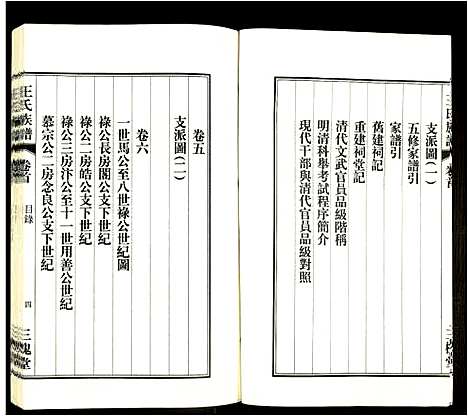 王氏族譜
卷首
三槐堂
支派圖(一)
五修家譜引
家譜引
舊建祠記
重建祠堂記
清代文武官員品級階稱
明清科舉考試程序簡介
現代干部與清代官員品級對照
卷五
支派圖(二)
卷六
一世馬公至八世祿公世紀圖
祿公長房閣公支下世紀
祿公二房皓公支下世紀
祿公三房汴公至十一世用善公世紀
慕宗公二房念良公支下世紀
王氏族譜
卷首
目錄
四
三槐堂